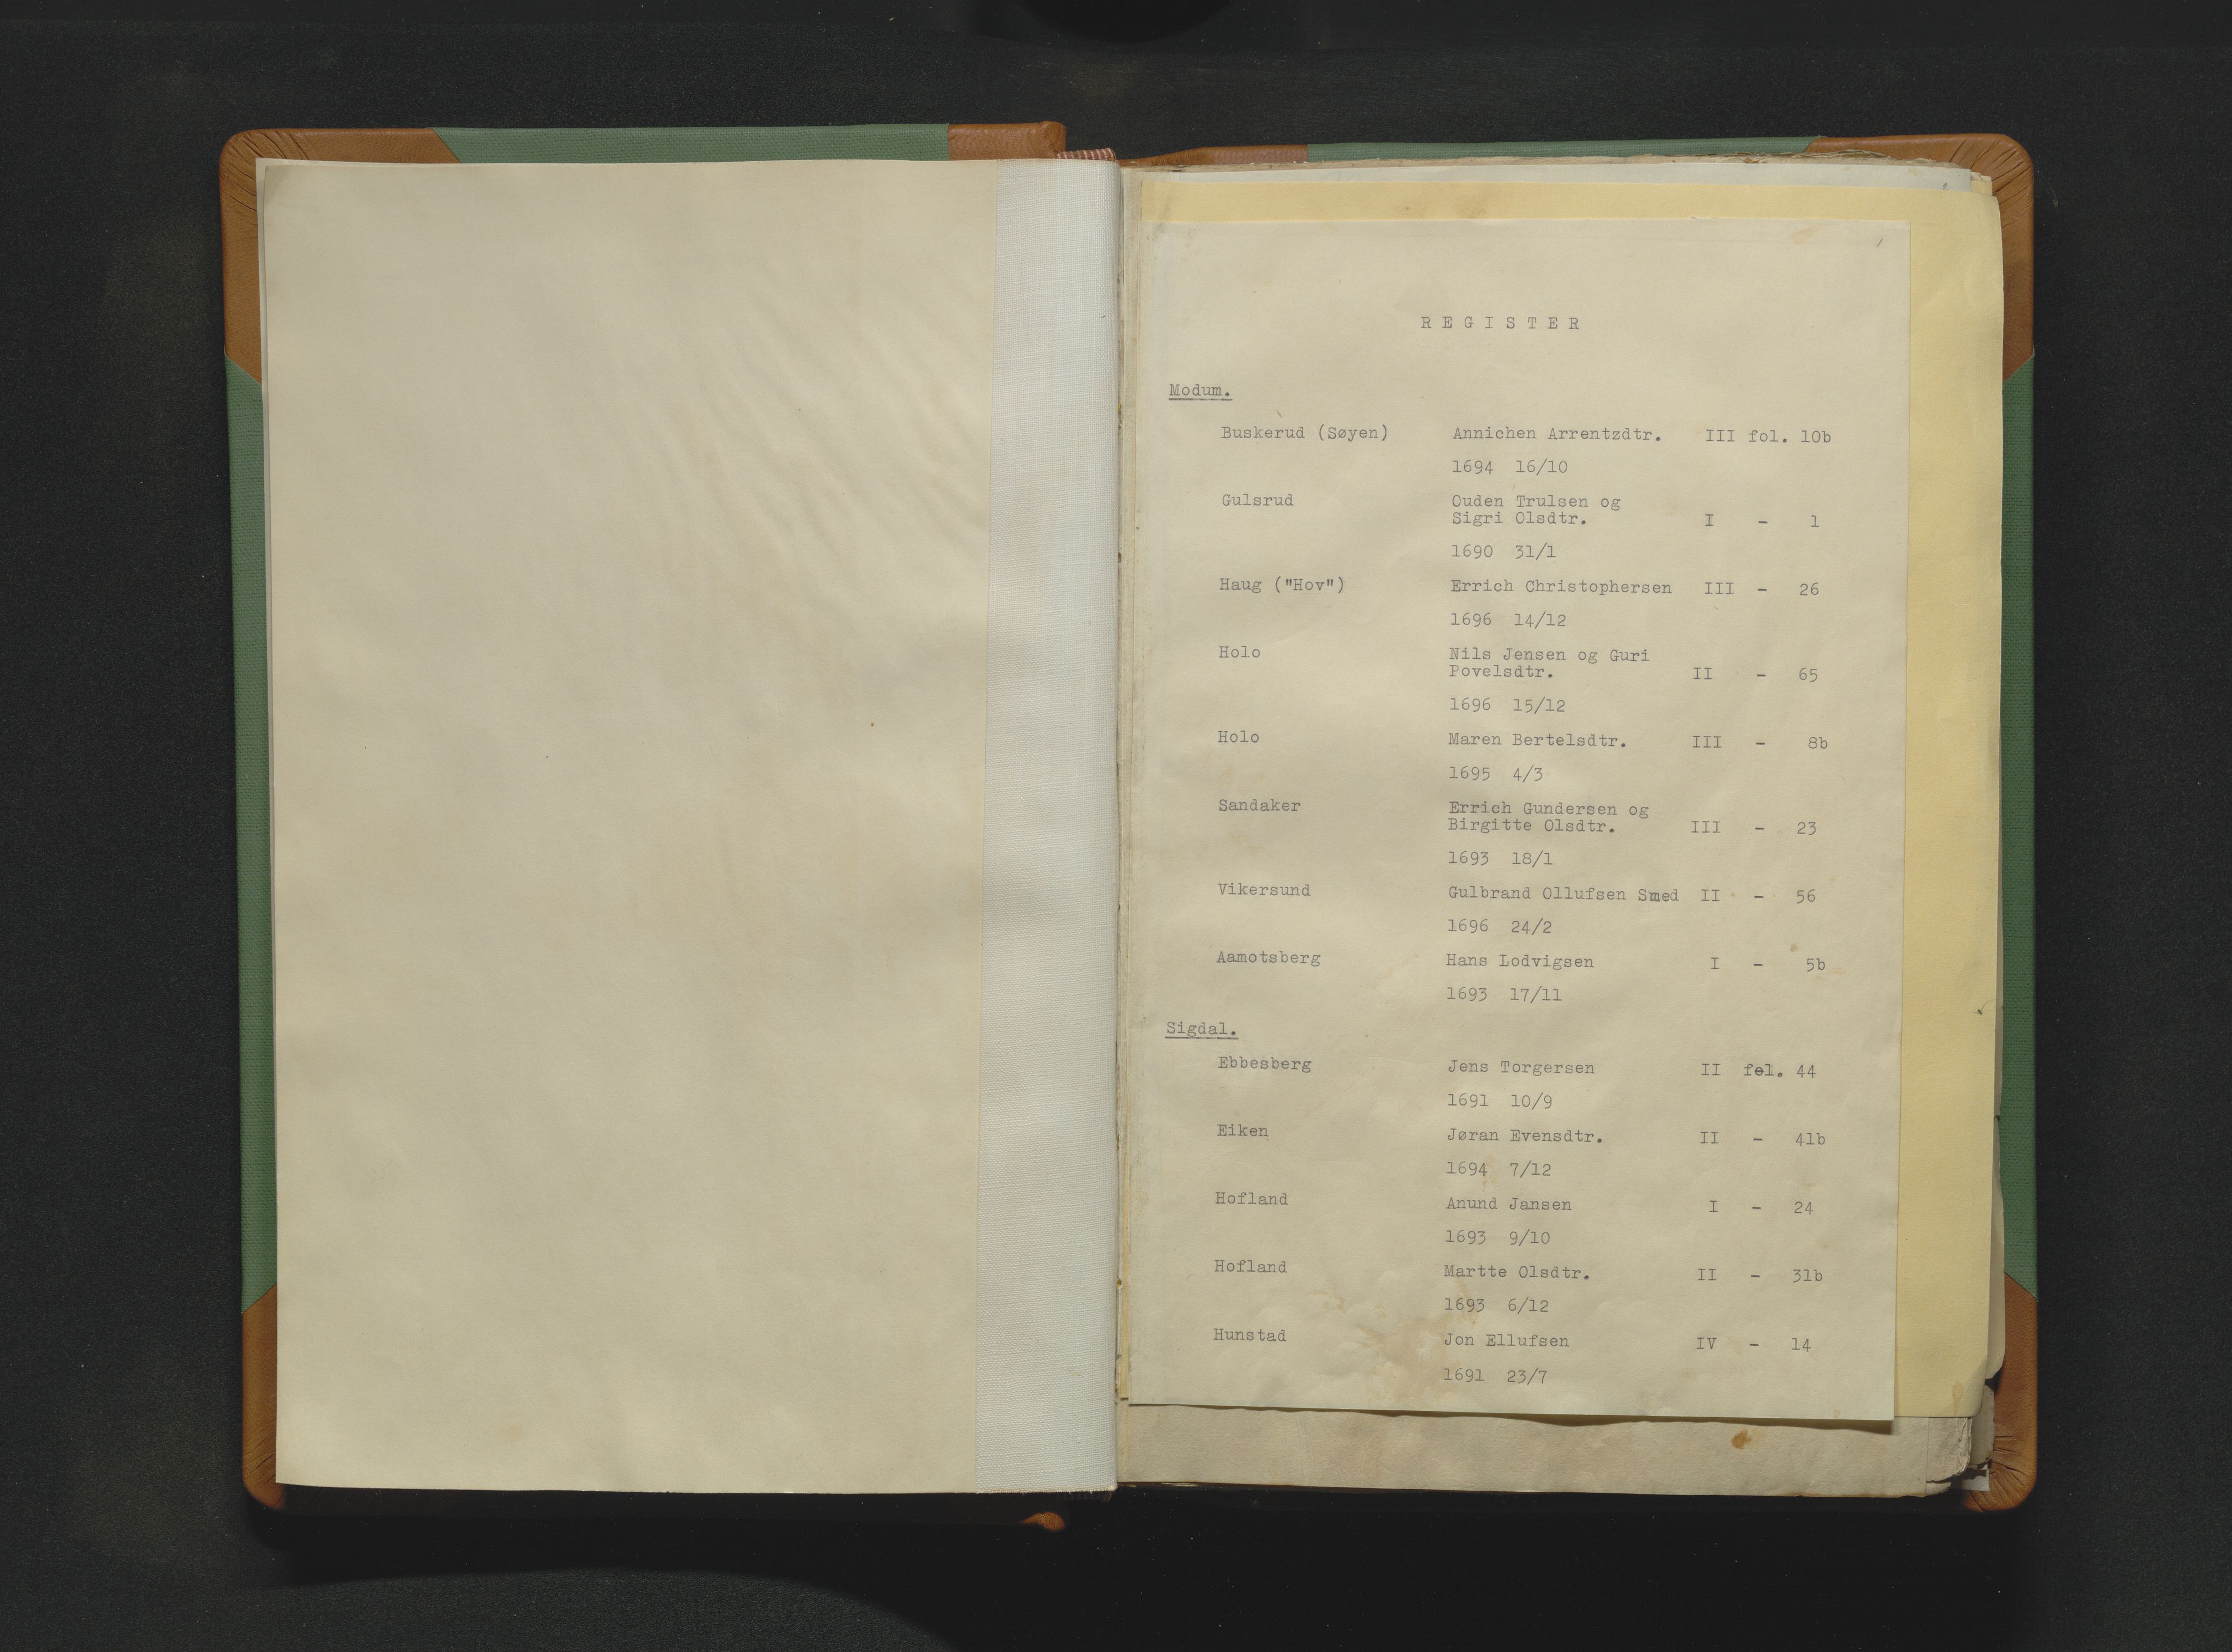 REGISTER
Modum.
Buskerud (Søyen) Annichen Arrentzdtr. III fol. 10b
1694 16/10
Gulsrud Ouden Trulsen og
Sigri Olsdtr. I - 1
1690 31/1
Haug ("Hov") Errich Christophersen III - 26
1696 14/12
Holo Nils Jensen og Guri
Povelsdtr. II - 65
1696 15/12
Holo Maren Bertelsdtr. III - 8b
1695 4/3
Sandaker Errich Gundersen og
Birgitte Olsdtr. III - 23
1693 18/1
Vikersund Gulbrand Ollufsen Smed II - 56
1696 24/2
Aamotsberg Hans Lodvigsen I - 5b
1693 17/11
Sigdal.
Ebbesberg Jens Torgersen II fol. 44
1691 10/9
Eiken Jøran Evensdtr. II - 41b
1694 7/12
Hofland Anund Jansen I - 24
1693 9/10
Hofland Martte Olsdtr. II - 31b
1693 6/12
Hunstad Jon Ellufsen IV - 14
1691 23/7